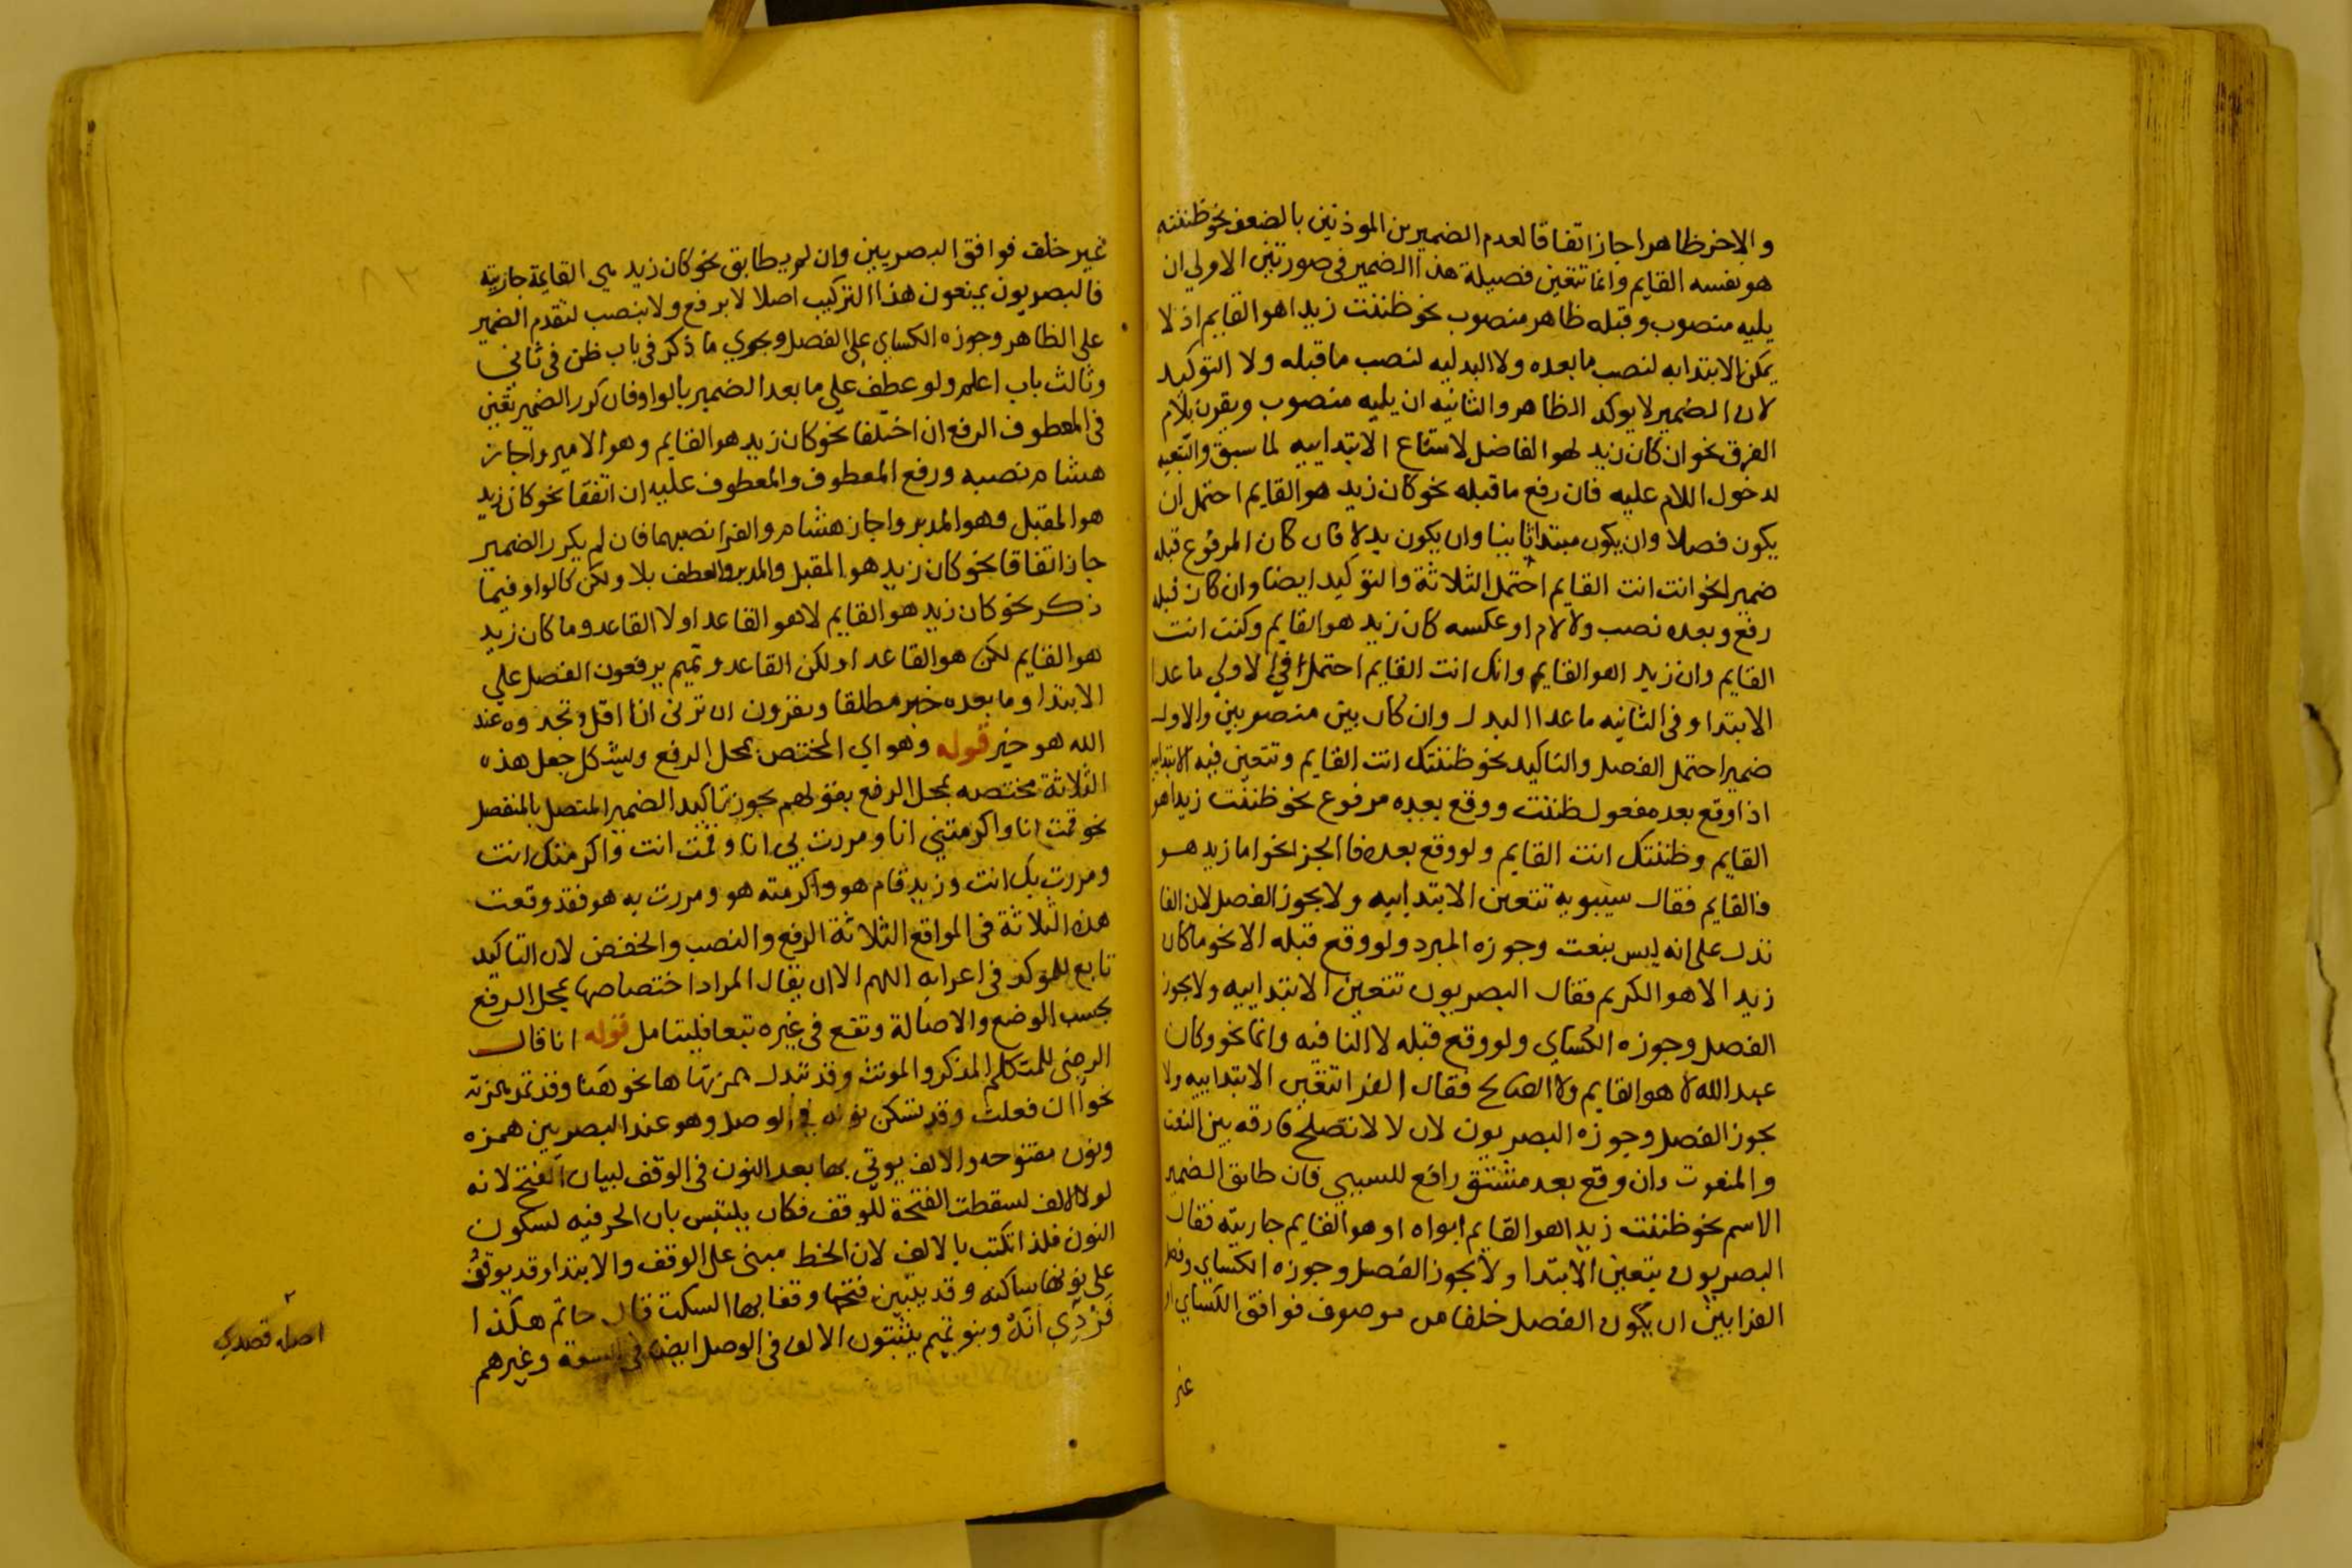 والاخر ظاهرا جاز اتفاقا لعدم الضميرين الموذنين بالضعف نحو ظننته
هو نفسه القايم وانما تتعين فصيلة هذا الضمير فى صورتين الاولي ان
يليه منصوب وقبله ظاهر منصوب نحو ظننت زيدا هو القايم اذ لا
يمكن الابتدا به لنصب ما بعده ولا البدليه لنصب ما قبله ولا التوكيد
لان الضمير لا يوكد الظاهر والثانيه ان يليه منصوب ويقرن بلام
الفرق نحو ان كان زيد لهو الفاضل لامتناع الابتداييه لما سبق والتبعيه
لدخول اللام عليه فان رفع ما قبله نحو كان زيد هو القايم احتمل ان
يكون فصلا وان يكون مبتدا ثانيا وان يكون بدلا فان كان المرفوع قبله
ضميرا نحو انت انت القايم احتمل الثلاثة والتوكيد ايضا وان كان قبله
رفع وبعده نصب ولا لام او عكسه كان زيد هو القايم وكنت انت
القايم وان زيدا هو القايم وانك انت القايم احتمل في الاولي ما عدا
الابتدا وفى الثانيه ما عدا البدل وان كان بين منصوبين والاول
ضميرا احتمل الفصل والتاكيد نحو ظننتك انت القايم وتتعين فيه الابتداييه
اذا وقع بعده مفعول ظننت ووقع بعده مرفوع نحو ظننت زيدا هو
القايم وظننتك انت القايم ولو وقع بعده فا الجزا نحو اما زيد هو
فالقايم فقال سيبويه تتعين الابتداييه ولا يجوز الفصل لان الفا
تدل على انه ليس بنعت وجوزه المبرد ولو وقع قبله الا نحو ما كان
زيد الا هو الكريم فقال البصريون تتعين الابتداييه ولا يجوز
الفصل وجوزه الكساي ولو وقع قبله لا النافيه وانما نحو وكان
عبد الله لا هو القايم ولا الصالح فقال الفرا تتعين الابتداييه ولا
يجوز الفصل وجوزه البصريون لان لا لا تصلح فارقه بين النعت
والمنعوت وان وقع بعد مشتق رافع للسببي فان طابق الضمير
الاسم نحو ظننت زيدا هو القايم ابواه او هو القايم جاريته فقال
البصريون يتعين الابتدا ولا يجوز الفصل وجوزه الكساي وفصل
الفرا بين ان يكون الفصل خلفا من موصوف فوافق الكساي او
غير
غير خلف فوافق البصريين وان لم يطابق نحو كان زيد هي القايمة جاريته
فالبصريون يمنعون هذا التركيب اصلا لا برفع ولا بنصب لتقدم الضمير
على الظاهر وجوزه الكساي على الفصل ويجري ما ذكر فى باب ظن فى ثاني
وثالث باب اعلم ولو عطف علي ما بعد الضمير بالواو فان كرر الضمير تعين
فى المعطوف الرفع ان اختلفا نحو كان زيد هو القايم وهو الامير واجاز
هشام نصبه ورفع المعطوف والمعطوف عليه ان اتفقا نحو كان زيد
هو المقبل وهو المدبر واجاز هشام والفرا نصبهما فان لم يكرر الضمير
جاز اتفاقا نحو كان زيد هو المقبل والمدبر والعطف بلا ولكن كالواو فيما
ذكر نحو كان زيد هو القايم لا هو القاعد او لا القاعد وما كان زيد
هو القايم لكن هو القاعد او لكن القاعد وتميم يرفعون الفصل علي
الابتدا وما بعده خبر مطلقا ويقرون ان ترنى انا اقل وتجدوه عند
الله هو خير قوله وهو اي المختص بمحل الرفع ويشكل جعل هذه
الثلاثة مختصه بمحل الرفع بقولهم يجوز تاكيد الضمير المتصل بالمنفصل
نحو قمت انا واكرمتني انا ومررت بي انا وقمت انت واكرمتك انت
ومررت بك انت وزيد قام هو واكرمته هو ومررت به هو فقد وقعت
هذه الثلاثة فى المواقع الثلاثة الرفع والنصب والخفض لان التاكيد
تابع للموكد فى اعرابه اللهم الا ان يقال المراد اختصاصها بمحل الرفع
بحسب الوضع والاصالة وتقع فى غيره تبعا فليتامل قوله انا قال
الرضى للمتكلم المذكر والمونث وقد تبدل همزتها ها نحو هنا وقد تمد همزته
نحو اان فعلت وقد تسكن نونه فى الوصل وهو عند البصريين همزه
ونون مفتوحه والالف يوتي بها بعد النون فى الوقف لبيان الفتح لانه
لولا الالف لسقطت الفتحة للوقف فكان يلتبس بان الحرفيه لسكون
النون فلذا تكتب بالالف لان الخط مبنى على الوقف والابتدا وقد يوقف
على نونها ساكنه وقد يتبين فتحها وقفا بها السكت قال حاتم هكذا
فزدي انه وبنو تميم يثبتون الالف فى الوصل ايضا فى السعه وغيرهم
اصله قصدي